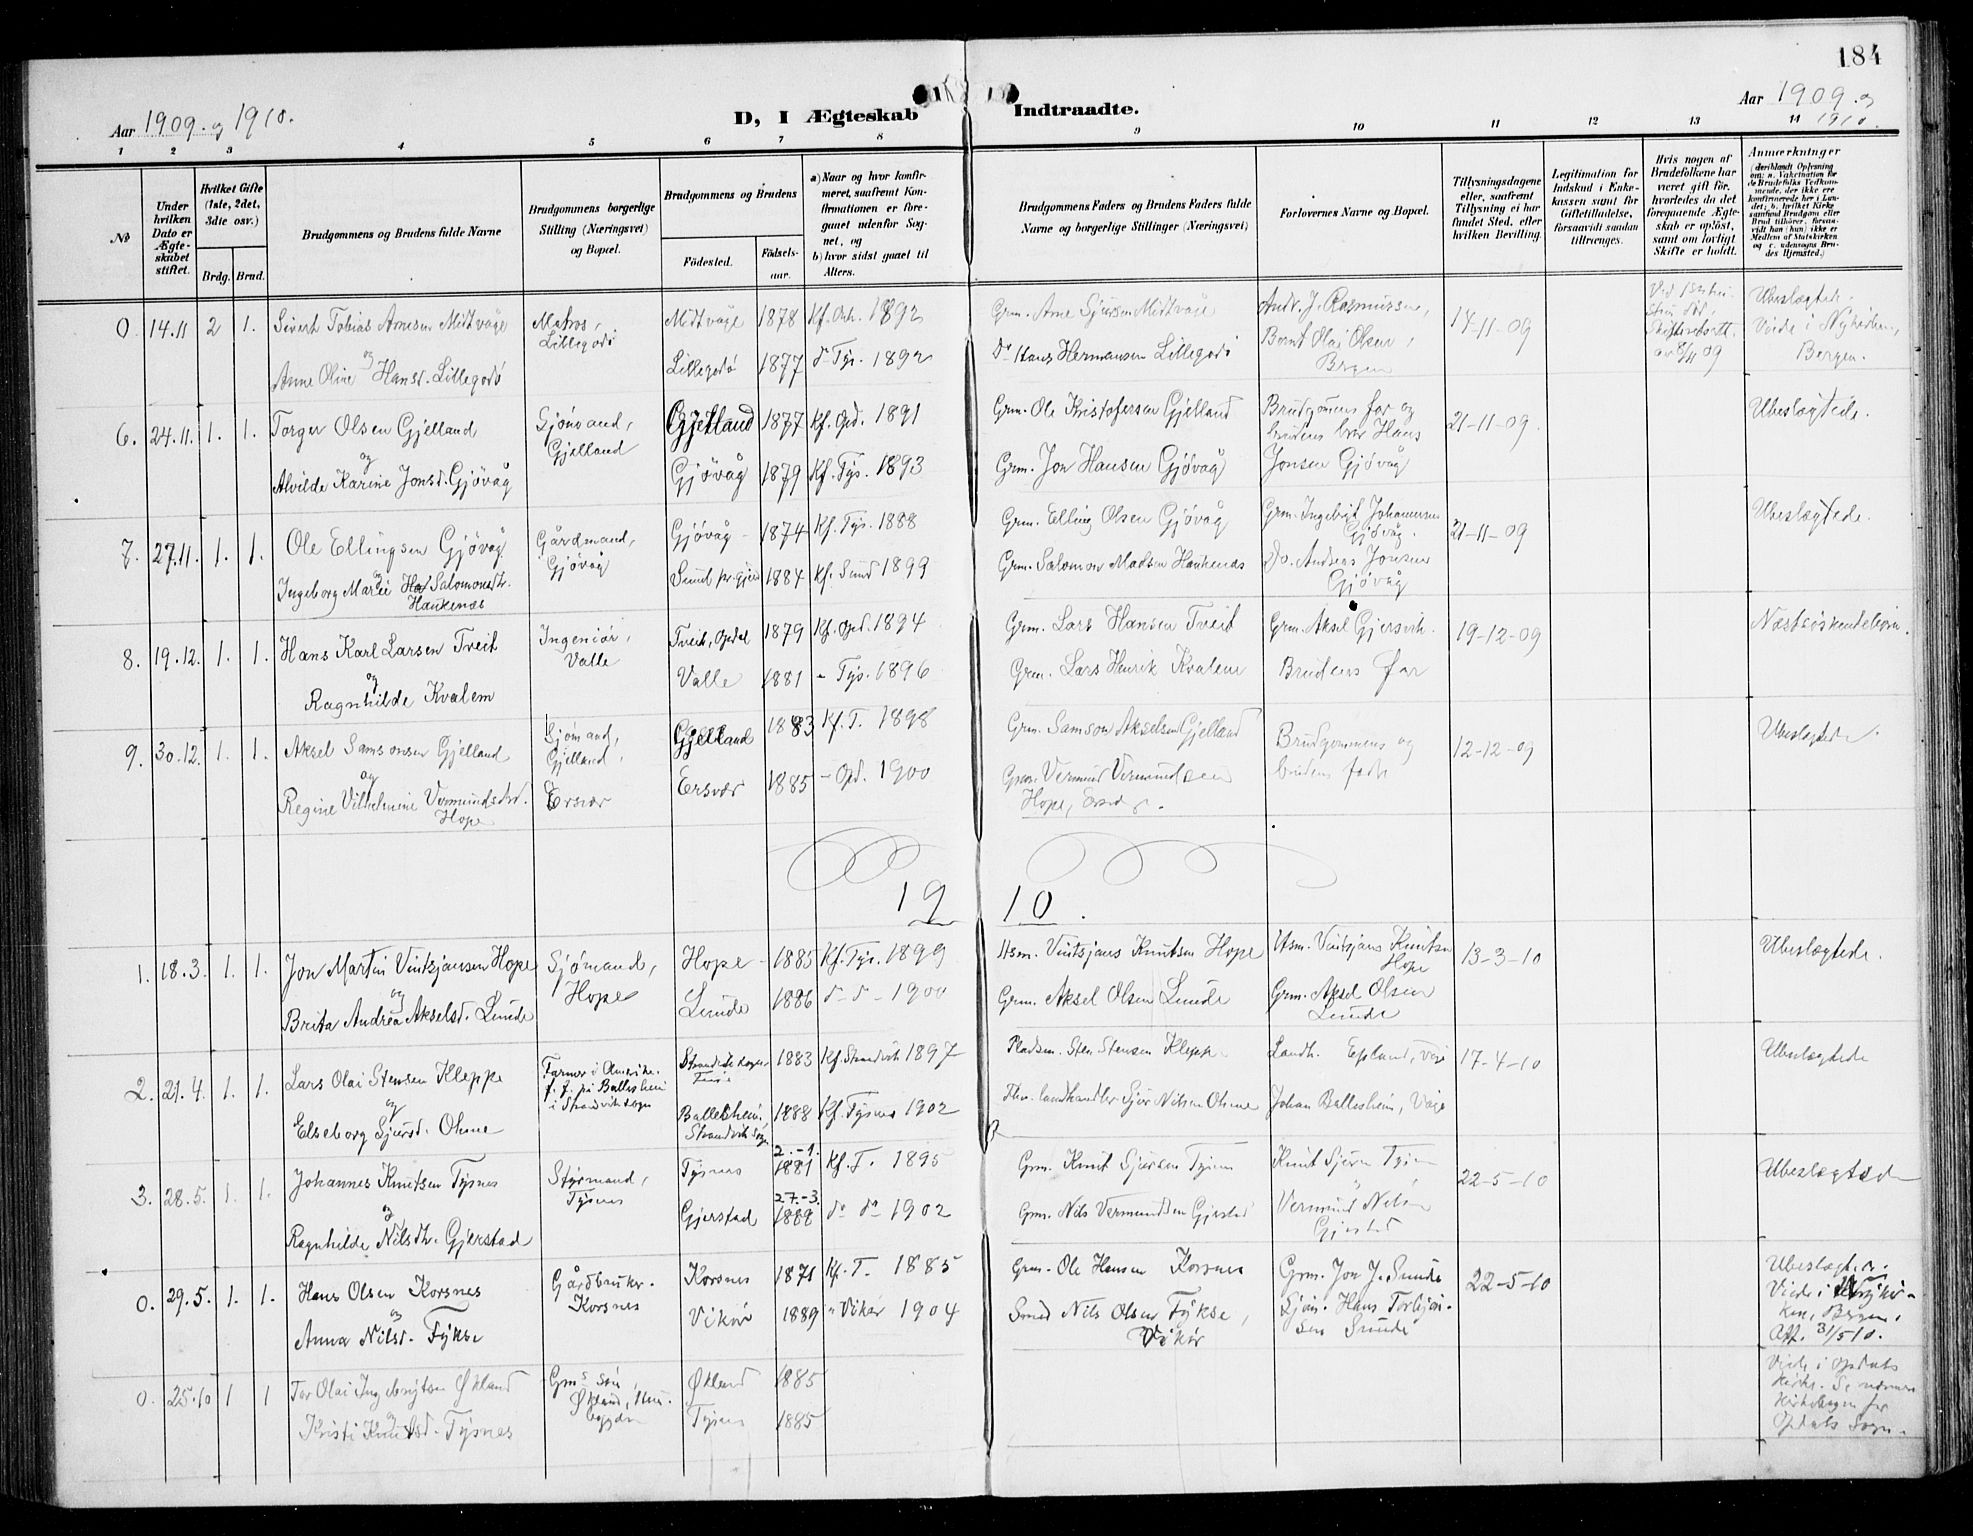 184
Aar 1909. og 1910.
D, I Ægteskab Indtraadte.
Aar 1909. og 1910.
1 2 3 4 5 6 7 8 9 10 11 12 13 14
No
Under hvilken Dato er Ægteskabet stiftet.
Hvilket Gifte (1ste, 2det, 3die osv.)
Brdg. Brud.
Brudgommens og Brudens fulde Navne
Brudgommens borgerlige Stilling (Næringsvei) og Bopæl.
Brudgommens og Brudens
Födested.
Födselsaar.
a) Naar og hvor konfirmeret, saafremt Konfirmationen er foregaaet udenfor Sognet, og
b) hvor sidst gaaet til Alters.
Brudgommens Faders og Brudens Faders fulde Navne og borgerlige Stillinger (Næringsvei)
Forlovernes Navne og Bopæl.
Tillysningsdagene eller, saafremt Tillysning ei har fundet Sted, efter hvilken Bevilling.
Legitimation for Indskud i Enkekassen samt for Giftetilladelse, forsaavidt saadan tiltrænges.
Hvis nogen af Brudefolkene har været gift för, hvorledes da det foregaaende Ægteskab er oplöst, samt om lovligt Skifte er holdt.
Anmærkninger
(deriblandt Oplysning om: a. Vakcination for de Brudefolks Vedkommende, der ikke er konfirmerede her i Landet; b. hvilket Kirkesamfund Brudgom eller Brud tilhörer, forsaavidt han (hun) ikke er Medlem af Statskirken og c. udensogns Brudes Hjemsted.)
0. 14.11 2 1. Sivert Tobias Arnesen Midtvage Matros, Lillegodö Midtvage 1878 Kf. Onh. 1892 Grm. Arne Sjursen Midtvage Andr. J. Rasmussen, 14-11-09 Ubeslægtede.
og
Anne Oline Hansd. Lillegodö Lillegodö 1877 do Tys. 1892 do Hans Hermansen Lillegodö Bernt Olai Olsen, Bergen 8/11 09 Viede i Nykirken, Bergen.
6. 24.11. 1. 1. Torger Olsen Gjelland Sjömand, Gjelland Gjelland 1877 Kf. Opd. 1891 Grm. Ole Kristofersen Gjelland Brudgomens far og 21-11-09. Ubeslægtede.
og
Alvilde Karine Jonsd. Gjövåg Gjövåg 1879 Kf. Tys. 1893 Grm. Jon Hansen Gjövåg brudens bror Hans Jonsen Gjövåg
7. 27.11. 1. 1. Ole Ellingsen Gjövåg Gårdmand, Gjövåg Gjövåg 1874 Kf. Tys. 1888 Grm. Elling Olsen Gjövåg Grm. Ingebrigt Johannessen Gjövåg. 21-11-09 Ubeslægtede.
og
Ingeborg Marie Salomonsdtr. Haukenæs Sund pr. 1884 Kf. Sund 1899 Grm. Salomon Madsen Haukenæs Do. Andreas Jonsen Gjövåg
8. 19.12. 1. 1. Hans Karl Larsen Tveit Ingeniör, Valle Tveit, Opdal 1879 Kf. Opd. 1894 Grm. Lars Hansen Tveit Grm. Aksel Gjersvik. 19-12-09
og
Ragnhilde Kvalem Valle 1881 " Tys. 1896 Grm. Lars Henrik Kvalem Brudens far
9. 30.12. 1. 1. Aksel Samsonsen Gjelland Sjömand, Gjelland, Gjelland 1883 Kf. T. 1898 Grm. Samson Akselsen Gjelland Brudgommens og 12-12-09 Ubeslægtede.
og
Regine Vilhelmine Vermundsdtr. Hope Ersvær Ersvær 1885 " Opd. 1900 Grm. Vermund Vermundsen Hope, brudens
1910.
1. 18.3. 1. 1. Jon Martin Vintsjansen Hope Sjömand, Hope Hope 1885 Kf. Tys. 1899 Hsm. Vintsjans Knutsen Hope Hsm. Vintsjans Knutsen Hope 13-3-10 Ubeslægtede.
og
Brita Andrea Akselsd. Lunde Lunde 1886 d - d - 1900 Grm. Aksel Olsen Lunde Grm. Aksel Olsen Lunde
2. 21.4. 1. 1. Lars Olai Stensen Kleppe Farmer i Amerika. f. f. på Ballesheim i Strandvik sogn Strandvik 1883 Kf. Strandvik 1897 Pladsm. Sten Stensen Kleppe Landh. Epland, Våge 17-4-10 Ubeslægtede
og
Elseborg Sjursd. Ohme Ballesheim, Strandvik Sogn 1888 Kf. Tysnes 1902 landhandler Sjur Nilsen Ohme Johan Ballesheim, Våge
3. 28.5. 1. 1. Johannes Knutsen Tysnes Styrmand, Tysnes Tysnes 2.-1. 1881 Kf. T. 1895 Grm. Knut Sjursen Tysnes Knut Sjursen Tysnes 22-5-10 Ubeslægtede
og
Ragnhilde Nilsdtr. Gjerstad Gjerstad 27.-3. 1882 do do 1902 Grm. Nils Vermundsen Gjerstad Vermund Nilsen Gjerstad
0. 29.5. 1. 1. Hans Olsen Korsnes Gårdbruker. Korsnes Korsnes 1871 Kf. T. 1885 Grm. Ole Hansen Korsnes Grm. Jon J. Sunde 22-5-10 Ubeslægtede.
og
Anna Nilsd. Fykse Vikör 1889 " Vikør 1904 Smed Nils Olsen Fykse, Vikør Sjöm. Hans Torbjönsen Sunde Viede i Nykirken, Bergen, Att. 31/5 10.
0. 25.10 1 1 Tor Olai Ingebrigtsen Økland Gms sön, Økland, Økland 1885 Viede i Opdals kirke. Se nærmere
og
Kristi Knutsd. Tysnes Tysnes 1885 Kirkebogen for Opdals Sogn.